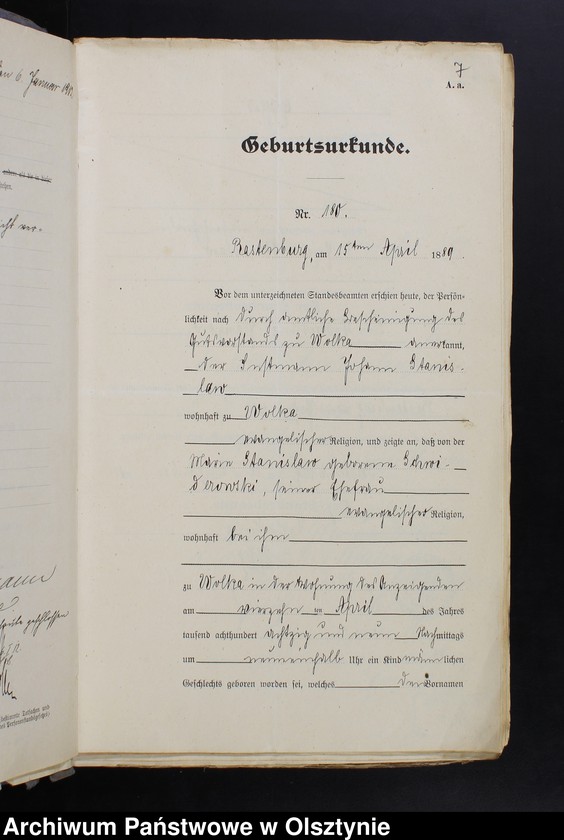 7
A. a.
Geburtsurkunde.
Nr. 180.
Rastenburg, am 15ten April 1889.
Vor dem unterzeichneten Standesbeamten erschien heute, der Persön-
lichkeit nach durch amtliche Bescheinigung des
Gutsvorstands zu Wolka anerkannt,
der Instmann Johann Stanis-
law
wohnhaft zu Wolka
evangelischer Religion, und zeigte an, daß von der
Marie Stanislaw geborene Schwi-
derowski, seiner Ehefrau
evangelischer Religion,
wohnhaft bei ihm
zu Wolka in der Wohnung des Anzeigenden
am vierzehn ten April des Jahres
tausend achthundert achtzig und neun Nachmittags
um neuneinhalb Uhr ein Kind männlichen
Geschlechts geboren worden sei, welches den Vornamen
6 Januar
Archiwum Państwowe w Olsztynie